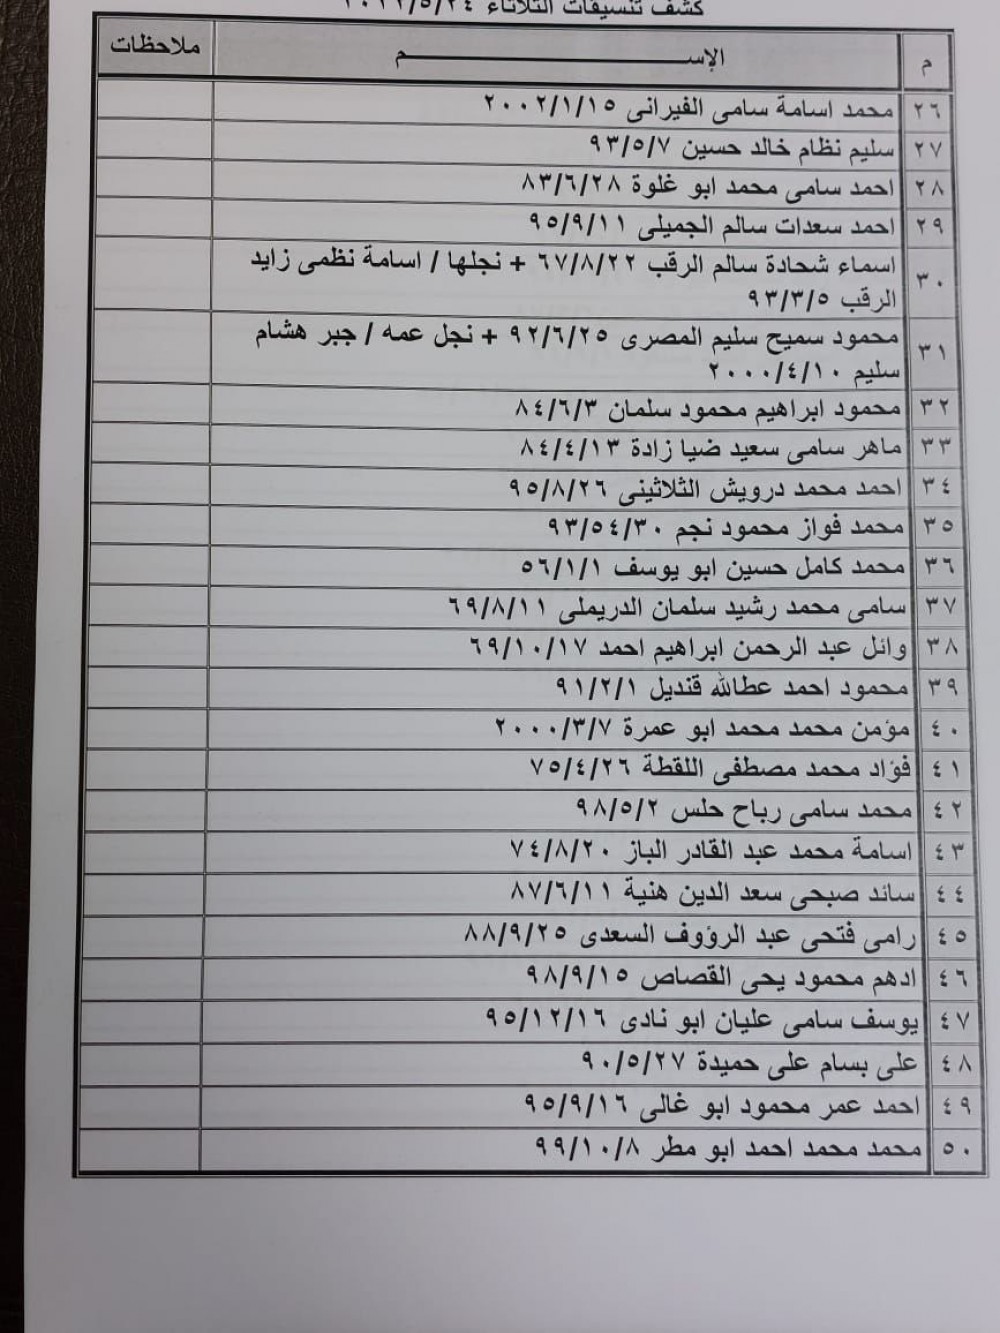 كشف تنسيقات الثلاثاء ٢٠٢٢/٥/٢٤
م الإســـــــــم ملاحظات
٢٦ محمد اسامة سامى الفيرانى ٢٠٠٢/١/١٥
٢٧ سليم نظام خالد حسين ٩٣/٥/٧
٢٨ احمد سامى محمد ابو غلوة ٨٣/٦/٢٨
٢٩ احمد سعدات سالم الجميلى ٩٥/٩/١١
٣٠ اسماء شحادة سالم الرقب ٦٧/٨/٢٢ + نجلها / اسامة نظمى زايد
الرقب ٩٣/٣/٥
٣١ محمود سميح سليم المصرى ٩٢/٦/٢٥ + نجل عمه / جبر هشام
سليم ٢٠٠٠/٤/١٠
٣٢ محمود ابراهيم محمود سلمان ٨٤/٦/٣
٣٣ ماهر سامى سعيد ضيا زادة ٨٤/٤/١٣
٣٤ احمد محمد درويش الثلاثينى ٩٥/٨/٢٦
٣٥ محمد فواز محمود نجم ٩٣/٥٤/٣٠
٣٦ محمد كامل حسين ابو يوسف ٥٦/١/١
٣٧ سامى محمد رشيد سلمان الدريملى ٦٩/٨/١١
٣٨ وائل عبد الرحمن ابراهيم احمد ٦٩/١٠/١٧
٣٩ محمود احمد عطالله قنديل ٩١/٢/١
٤٠ مؤمن محمد محمد ابو عمرة ٢٠٠٠/٣/٧
٤١ فؤاد محمد مصطفى اللقطة ٧٥/٤/٢٦
٤٢ محمد سامى رباح حلس ٩٨/٥/٢
٤٣ اسامة محمد عبد القادر الباز ٧٤/٨/٢٠
٤٤ سائد صبحى سعد الدين هنية ٨٧/٦/١١
٤٥ رامى فتحى عبد الرؤوف السعدى ٨٨/٩/٢٥
٤٦ ادهم محمود يحى القصاص ٩٨/٩/١٥
٤٧ يوسف سامى عليان ابو نادى ٩٥/١٢/١٦
٤٨ على بسام على حميدة ٩٠/٥/٢٧
٤٩ احمد عمر محمود ابو غالى ٩٥/٩/١٦
٥٠ محمد محمد احمد ابو مطر ٩٩/١٠/٨